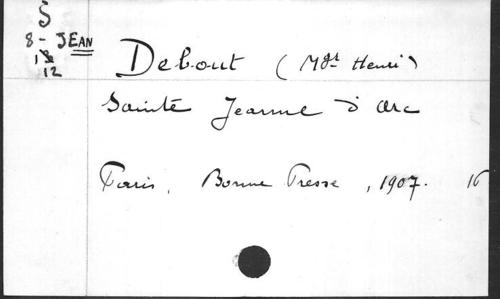 S
8 - JEAN
12
Debout (Mgr Henri)
Sainte Jeanne d'Arc
Paris, Bonne Presse, 1907. 16